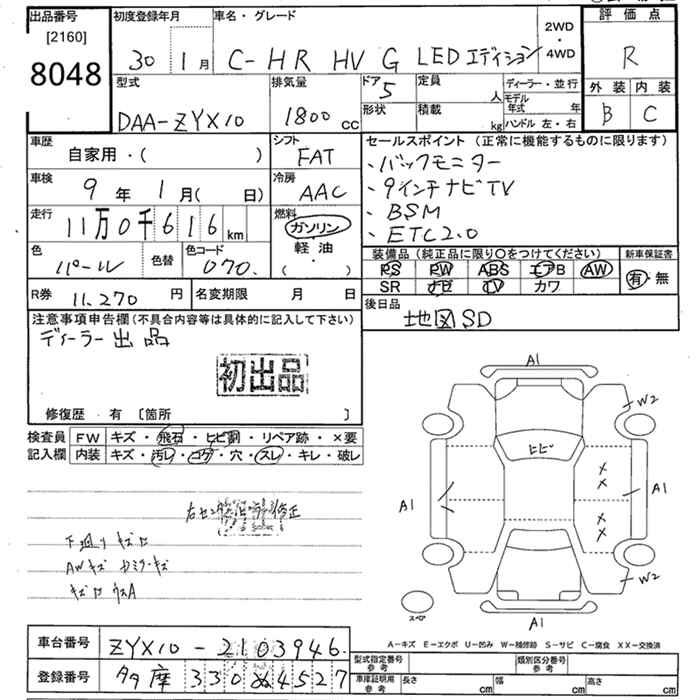 出品番号
[2160]
8048
初度登録年月
30 1月
車名・グレード
C-HR HV G LEDエディション
2WD
・
4WD
評価点
R
外装 内装
B C
型式
DAA-ZYX10
排気量
1800cc
ドア
5
形状
定員
人
積載
kg
ディーラー・並行
モデル年式 年
ハンドル 左・右
車歴
自家用・( )
シフト
FAT
車検
9年 1月( 日)
冷房
AAC
走行
11万0千616km
燃料
ガソリン
・
軽油
・
( )
色
パール
色替
色コード
070.
R券
11,270円
名変期限 月 日
セールスポイント(正常に機能するものに限ります)
、バックモニター
、9インチナビTV
、BSM
、ETC2.0
装備品(純正品に限り○をつけてください)
PS PW ABS エアB AW
SR ナビ TV カワ
新車保証書
有・無
後日品
地図SD
注意事項申告欄(不具合内容等は具体的に記入して下さい)
ディーラー出品
初出品
修復歴・有 〔箇所 〕
検査員
記入欄
FW キズ・飛石・ヒビ割・リペア跡・×要
内装 キズ・汚レ・コゲ・穴・スレ・キレ・破レ
下廻りキズロ
AWキズ
A1
W2
ヒビ
A1
A1
W2
A1
スペア
A－キズ E－エクボ U－凹み W－補修跡 S－サビ C－腐食 XX－交換済
車台番号
ZYX10-2103946.
登録番号
多摩 330 ぬ 4527
型式指定番号
参考
類別区分番号
参考
車庫証明用
参考
長さ cm
幅 cm
高さ cm